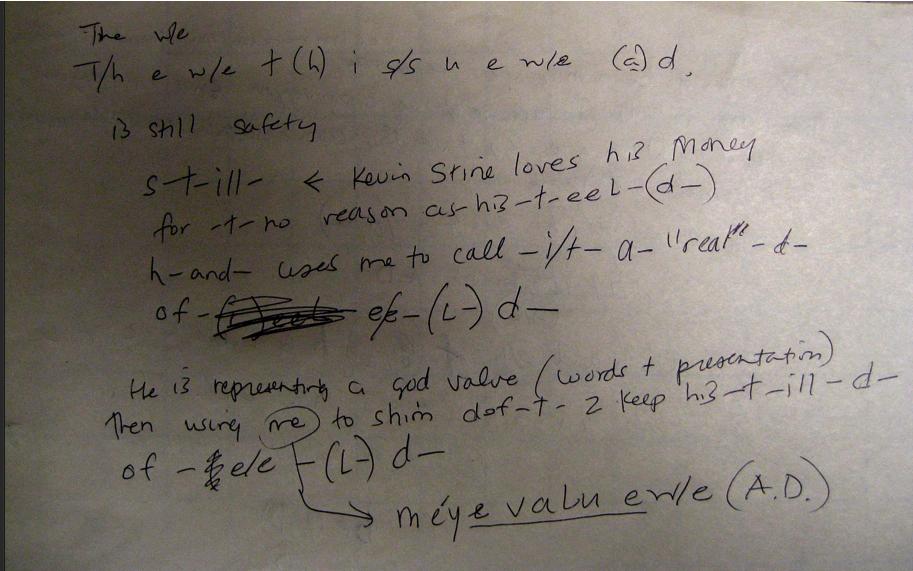 The w/e
T/h e w/e t (h) i s/s u e w/e (a) d.
is still safety
s-t-ill- < Kevin Stine loves his Money
for -t- no reason as- his-t-eel-(d-)
h-and- uses me to call -i/t- a- "real" -d-
of - e/e-(L-) d-
He is representing a god value (words + presentation)
Then using me to shim -t- 2 keep his-t-ill-d-
of - e/e -(L-) d-
méye valu ew/e (A.D.)